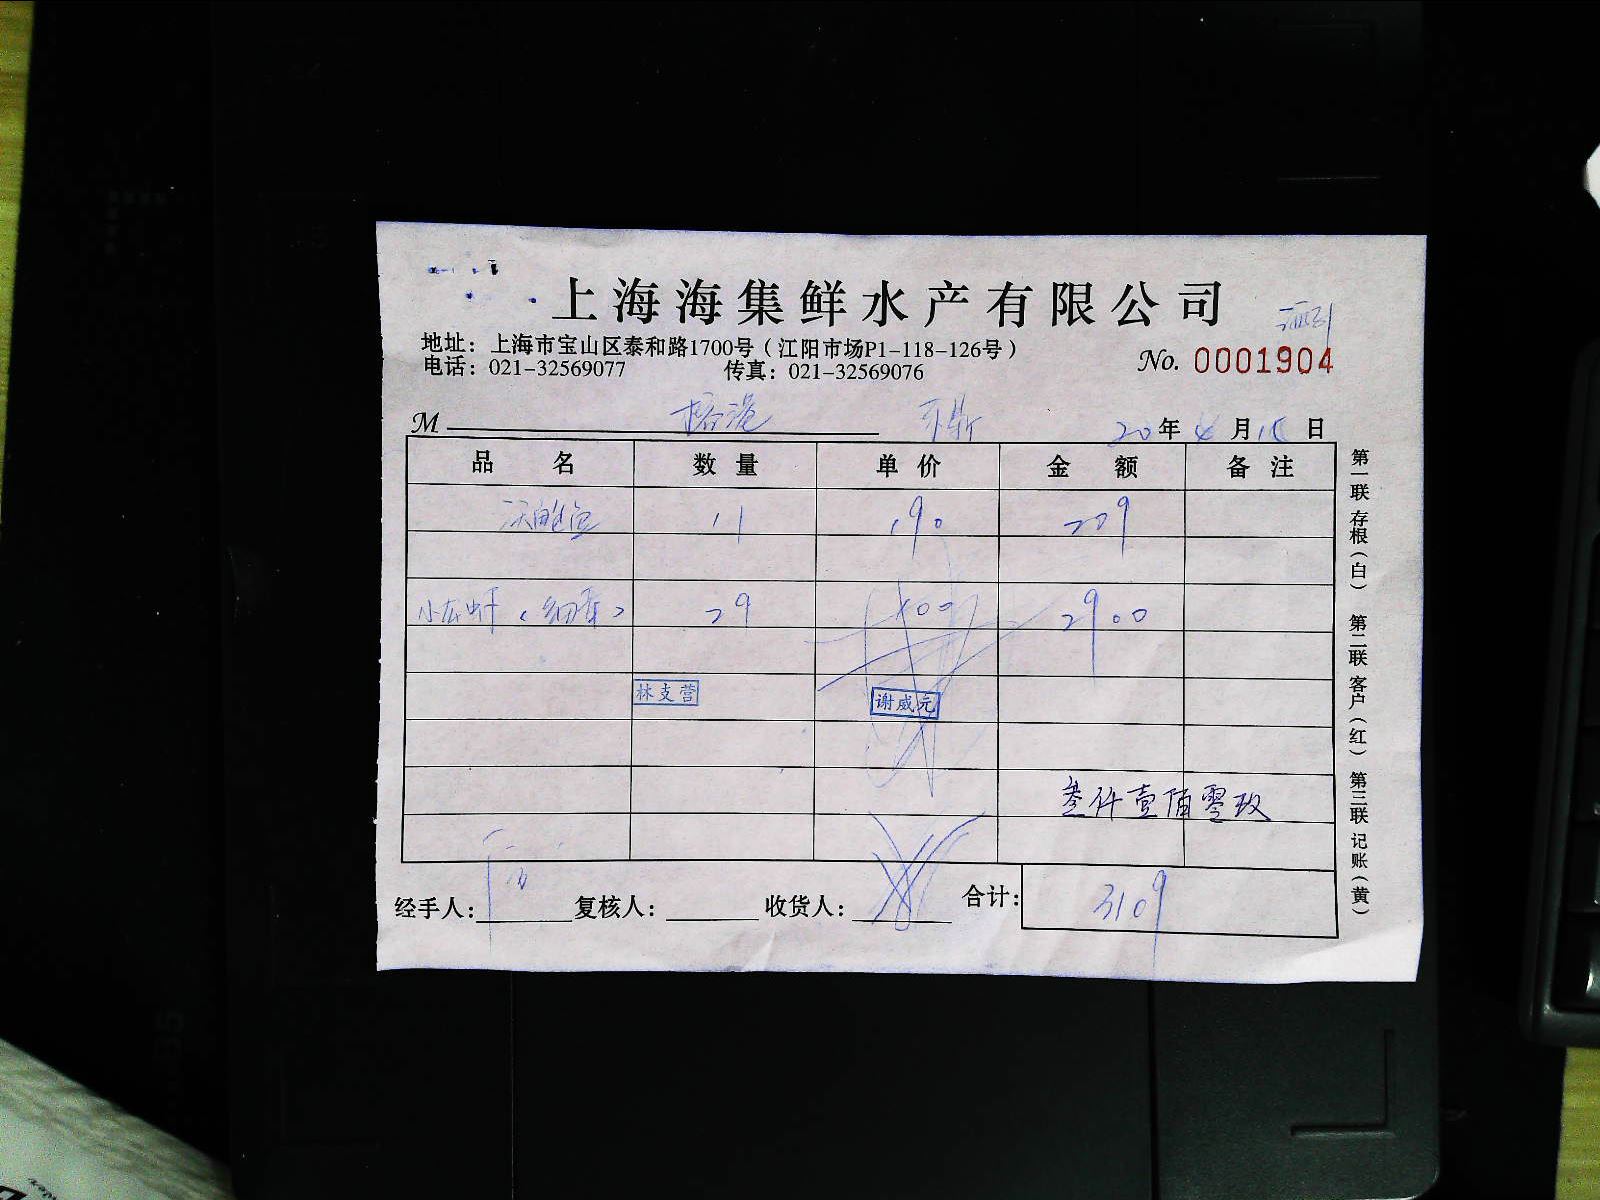 上海海集鲜水产有限公司
地址：上海市宝山区泰和路1700号（江阳市场P1-118-126号）
电话：021-32569077 传真：021-32569076
No. 0001904
M
20年4月 日
品名 数量 单价 金额 备注
11 190 209
小龙虾 29 100 2900
林支营 谢威元
叁仟壹佰零玖
经手人： 复核人： 收货人： 合计： 3109
第一联 存根（白） 第二联 客户（红） 第三联 记账（黄）